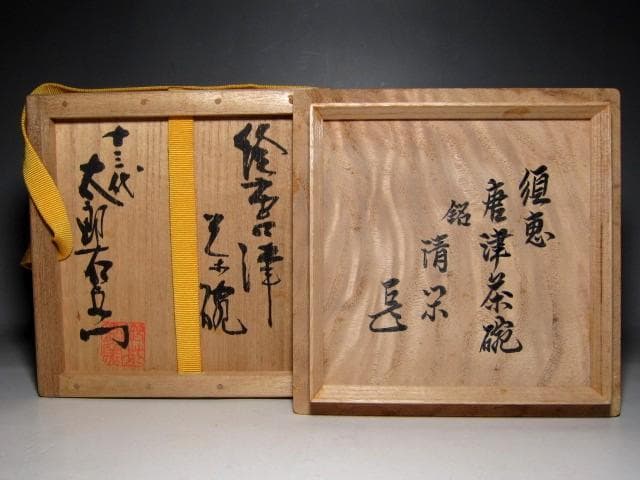 須恵
唐津茶碗
銘 清栄
絵唐津
茶碗
十三代
太郎右衛門